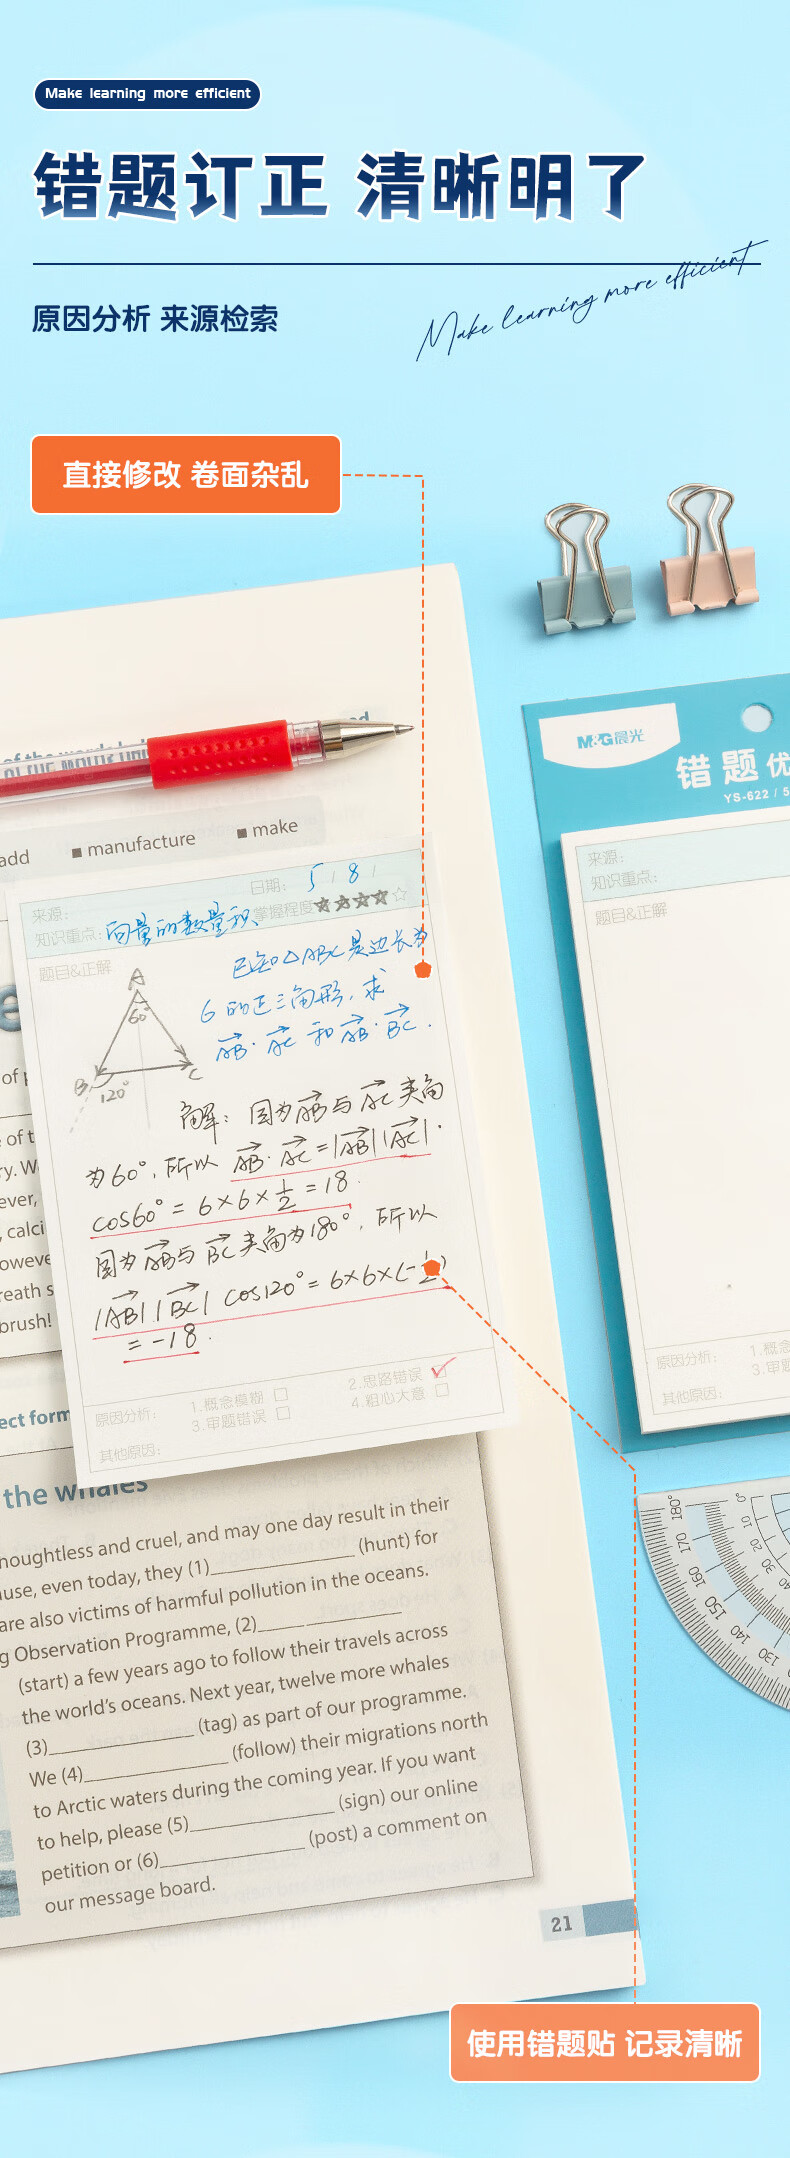 Make learning more efficient
错题订正 清晰明了
Make learning more efficient
原因分析 来源检索
直接修改 卷面杂乱
add ■ manufacture ■ make
M&G晨光
错题优
YS-622 / 5
来源:
日期: 5 / 8 /
知识重点: 向量的数量积
掌握程度 ★★★★☆
题目&正解
已知△ABC是边长为
6的正三角形,求
AB·AC和AB·BC.
A
60°
B
C
120°
解: 因为AB与AC夹角
为60°,所以 AB·AC=|AB||AC|·
cos60°=6×6×1/2=18.
因为AB与BC夹角为180°,所以
|AB||BC|cos120°=6×6×(-1/2)
=-18.
原因分析: 1.概念模糊 □ 2.思路错误 ☑
3.审题错误 □ 4.粗心大意 □
其他原因:
来源:
知识重点:
题目&正解
原因分析: 1.概念
3.审题
其他原因:
of
e of t
ry. W
ever,
calci
oweve
reath s
brush!
ect form
the whales
noughtless and cruel, and may one day result in their
use, even today, they (1)____ (hunt) for
are also victims of harmful pollution in the oceans.
g Observation Programme, (2)____
(start) a few years ago to follow their travels across
the world's oceans. Next year, twelve more whales
(3)____ (tag) as part of our programme.
We (4)____ (follow) their migrations north
to Arctic waters during the coming year. If you want
to help, please (5)____ (sign) our online
petition or (6)____ (post) a comment on
our message board.
21
180° 170 160 150 140 130
0° 10 20 30 40
使用错题贴 记录清晰